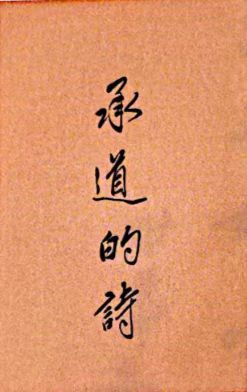 承道的詩